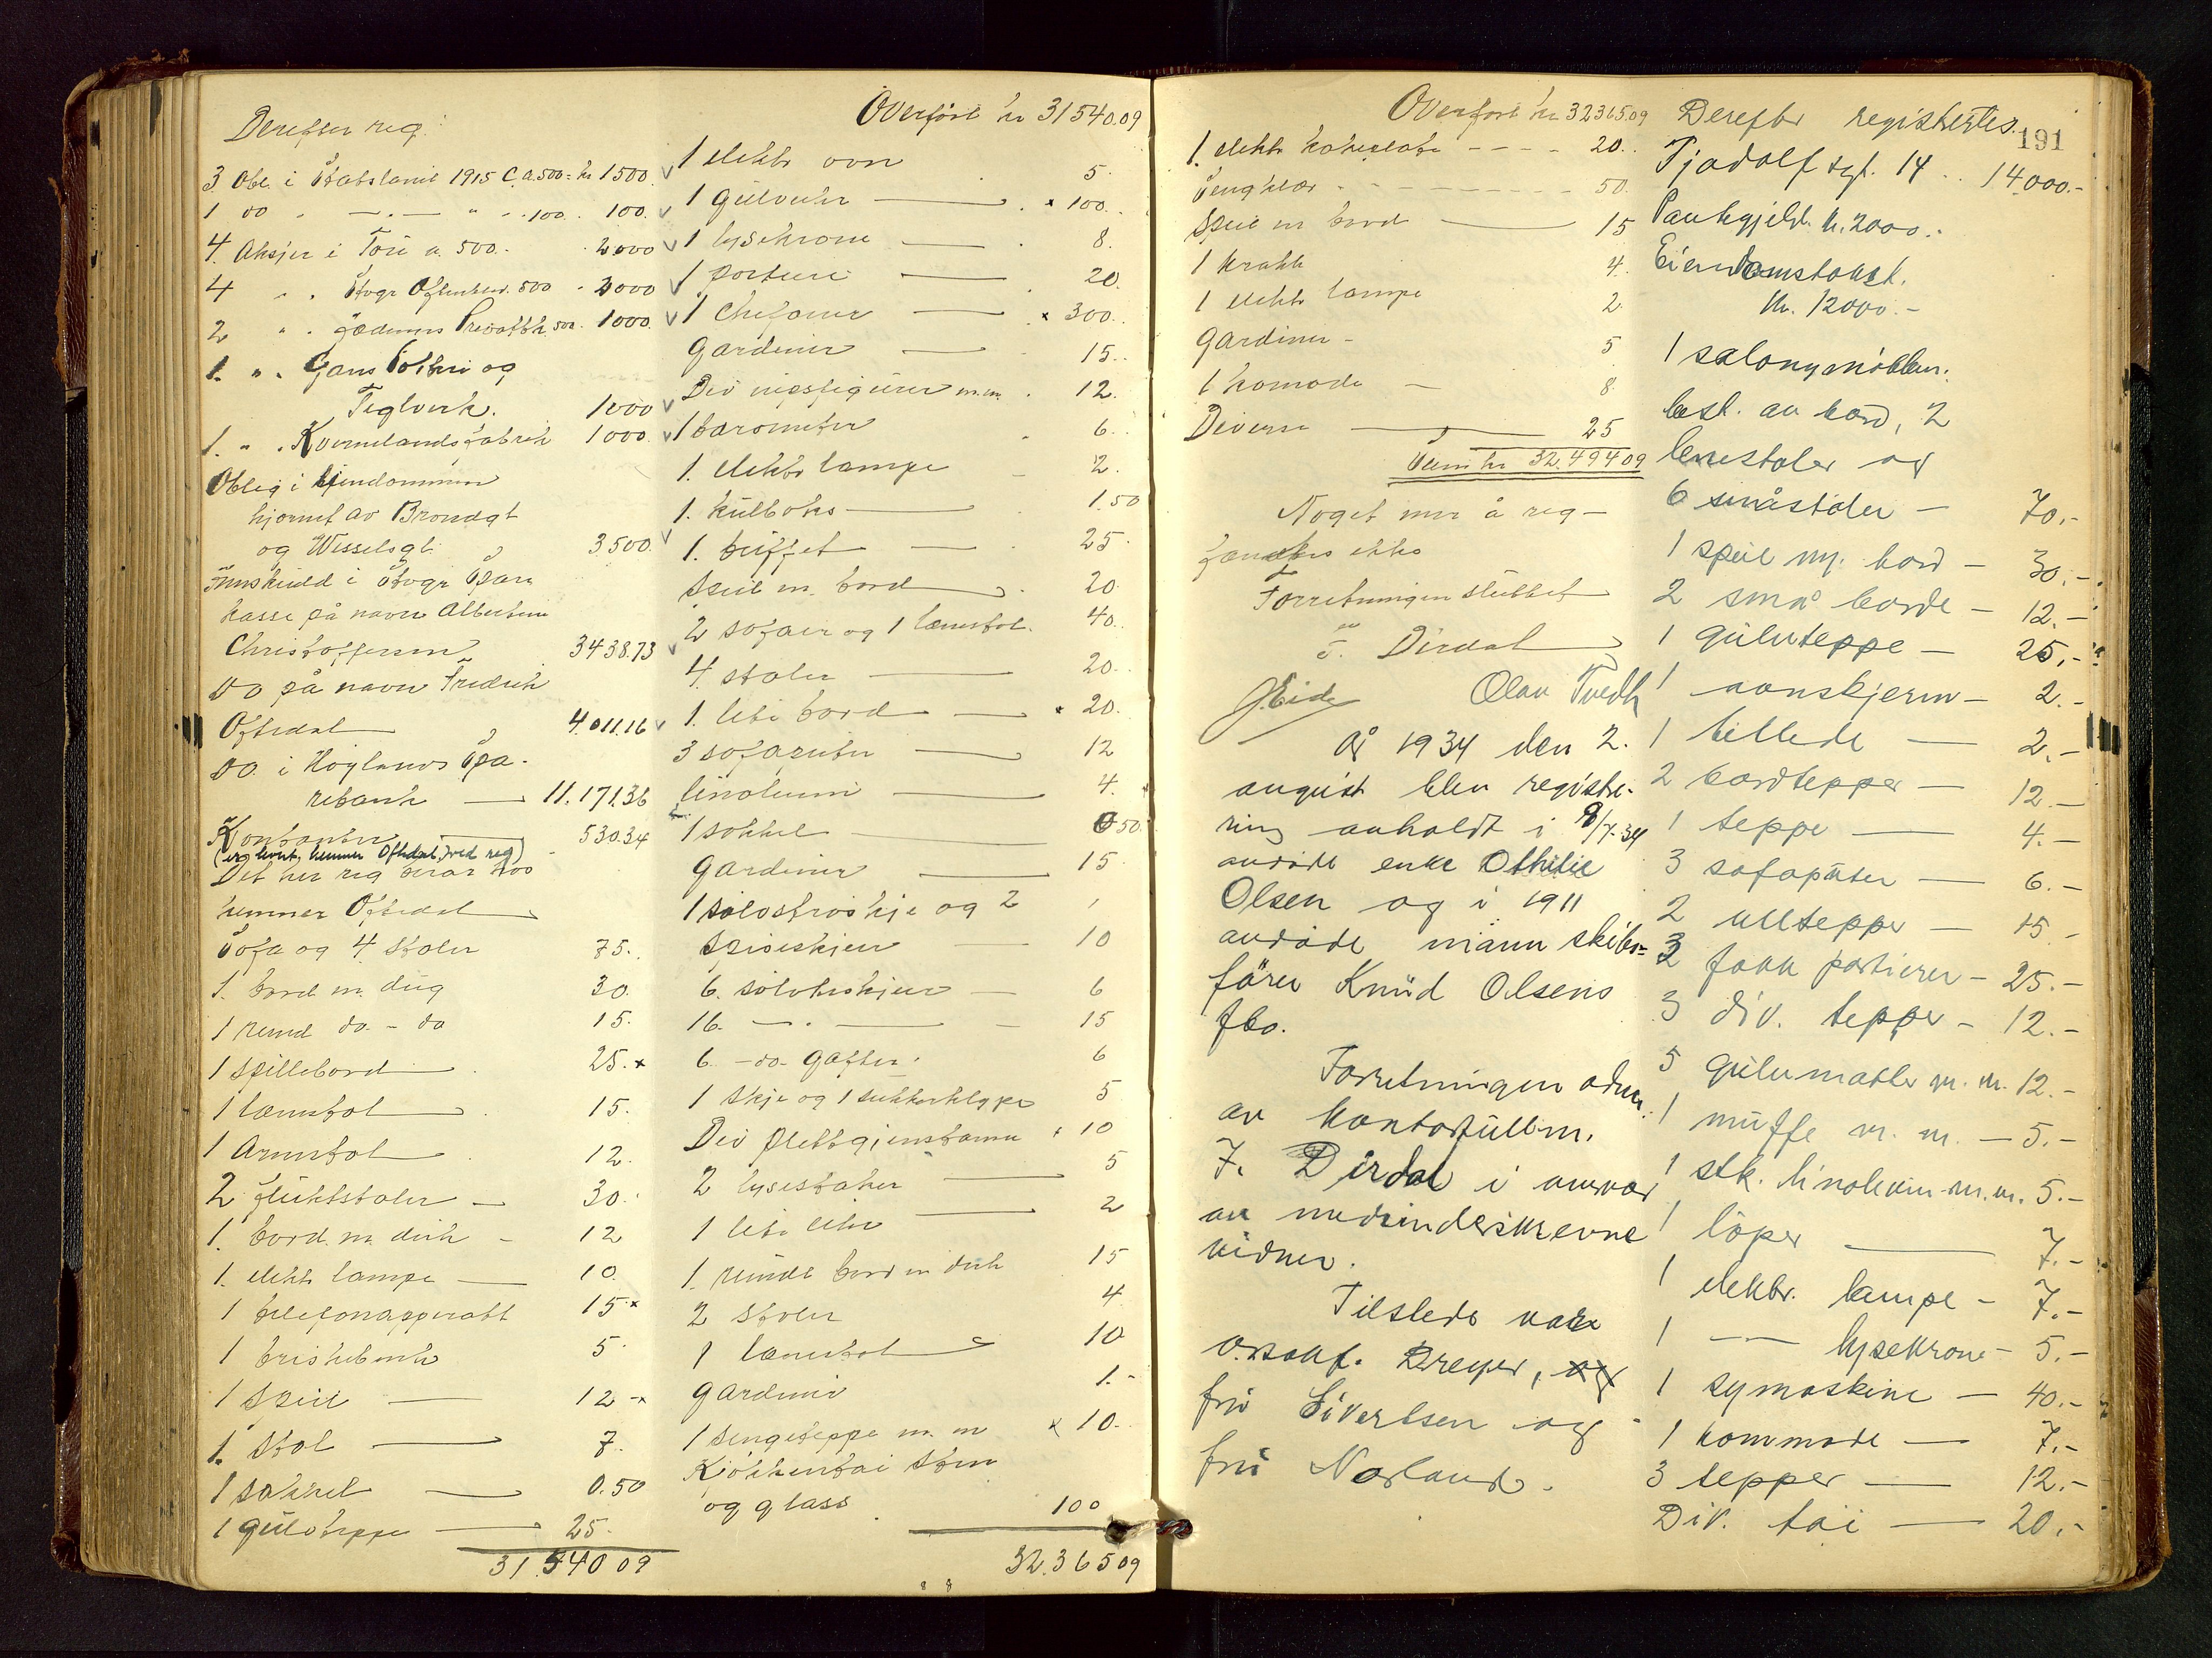 Derefter reg.
3 Obl. i Statslånet 1915 C. a. 500 = kr 1500.
1 do - —.— " . . 100. 100.
4. Aksjer i Tou a. 500. - 2000
4 " . Stvgr 500 - 2000
2 " . Jæderens Privatbk. 500. 1000.
1. " . Gann Potteri og
Teglverk. 1000
1. " . Kvernelands fabrik 1000.
Oblig i Eiendommen
hjørnet av Brondgt
og Wesselsgt. 3500.
Innskudd i Stvgr Spare
kasse på navn Albertine
Christoffersen 3438.73
do på navn Fredrik
Oftedal 4.011.16
do. i Høylands Spa-
rebank — 11.171.36
Kontanter 530.34
(erg levert kemner Oftedal ved reg)
Det her reg beror hos
kemner Oftedal
Sofa og 4 stoler 75.
1. bord m. dug 30.
1 rund do. - do 15.
1 spillebord 25. x
1 lænestol 15.
1 Armstol 12.
2 fluktstoler — 30.
1. bord. m. duk - 12
1. elektr lampe — 10.
1 telefonapparatt 15 x
1 briskebenk 5.
1 speil — 12 - x
1. stol — 7.
1 sokkel — 0.50
1 gulvteppe — 25.
31.540 09
Overført kr 31540.09
1 elektr ovn 5.
1 gulvuhr — x 100.
1 lysekrone — 8.
1 portiere — 20.
1 Chefonier — x 300.
Gardiner — 15.
Div nipsfigurer m.m. 12.
1 barometer 6.
1. elektr lampe 2.
1. kulboks — 1.50
1. buffet — 25.
Speil m. bord 20.
2 sofaer og 1 lænestol. 40.
4 stoler — 20.
1. lite bord — x 20.
3 sofaputer — 12
linoleum — 4.
1 sokkel — 0 50
Gardiner — 15.
1 sølvstrøskje og 2
spiseskjeer — 10
6. sølvteskjeer — 6
16. — . — 15
6 - do - gafler. 6
1 skje og 1 sukkerklype 5
Div plettgjenstanne x 10
2 lysestaker — 5
1 lite uhr — 2
1. runde bord m duk 15
2 stoler 4
1 lænestol 10
gardiner 1.-
1 sengeteppe m. m x 10.
Kjøkkentøi sten
og glass 100
32.365 09
Overført kr 32365.09
1. elektr kokeplate - - - - 20.
Sengklær - - - - - 50.
Speil m bord — 15
1 krakk 4.
1 elektr lampe 2.
Gardiner - 5
1 komode — 8.
Diverse — 25
Sum kr 32.494 09
Noget mer å reg-
fandtes ikke
Forretningen sluttet
F. Dirdal
J. Eide Olav Tvedt
År 1934 den 2.
august blev registre-
ring avholdt i 8/7-34
avdøde enke Othilie
Olsen og i 1911
avdøde mann skibs-
fører Knud Olsens
fbo.
Forretningen adm.
av kontorfullm.
F. Dirdal i nærvær
av nedunderskrevne
vidner.
Tilstede var
o.rsakf. Dreyer, og
fru Sivertsen og
fru Norland.
191
Derefter registrertes.
Tjodolfsgt. 14 . . 14000.-
Pantegjeld kr. 2000.-
Eiendomstakst.
kr. 12000.-
1 salongmøblem.
best. av bord, 2
lenestoler og
6 småstoler — 70.-
1 speil m. bord — 30.-
2 små borde — 12.-
1 gulvteppe — 25.-
1 ovnskjerm — 2.-
1 billede — 2.-
2 bordtepper — 12.-
1 teppe — 4.-
3 sofaputer — 6.-
2 ullteppe — 15.-
3 fakk portierer — 25.-
3 div. tepper — 12.-
5 gulvmatter m. m. 12.-
1 muffe m. m. — 5.-
1 stk. linoleum m. m. 5.-
1 løper — 7.-
1 elektr. lampe — 7.-
1 — — lysekrone — 5.-
1 symaskine — 40.-
1 kommode — 7.-
3 tepper — 12.-
Div. tøi — 20.-